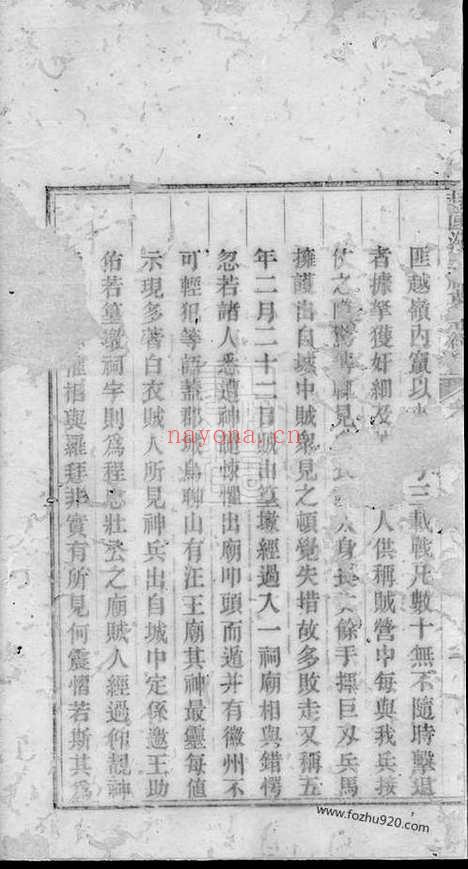 匪越嶺內竄以 三載戰凡數十無不隨時擊退
者據拏獲奸細及 人供稱賊營中每與我兵接
仗之 見 身長 餘手揮巨刃兵馬
擁護出自城中賊衆見之頓覺失措故多敗走又稱五
年二月二十二日賊由篁墩經過入一祠廟相與錯愕
忽若諸人悉遺神 悚懼出廟叩頭而遁并有徽州不
可輕犯等語蓋郡城烏聊山有汪王廟其神最靈每值
示現多著白衣賊人所見神兵出自城中定係邀王助
佑若篁墩祠宇則爲程忠壯公之廟賊人經過仰覩神
相與羅拜非實有所見何震慴若斯其爲
nayona.cn
www.fozhu920.com